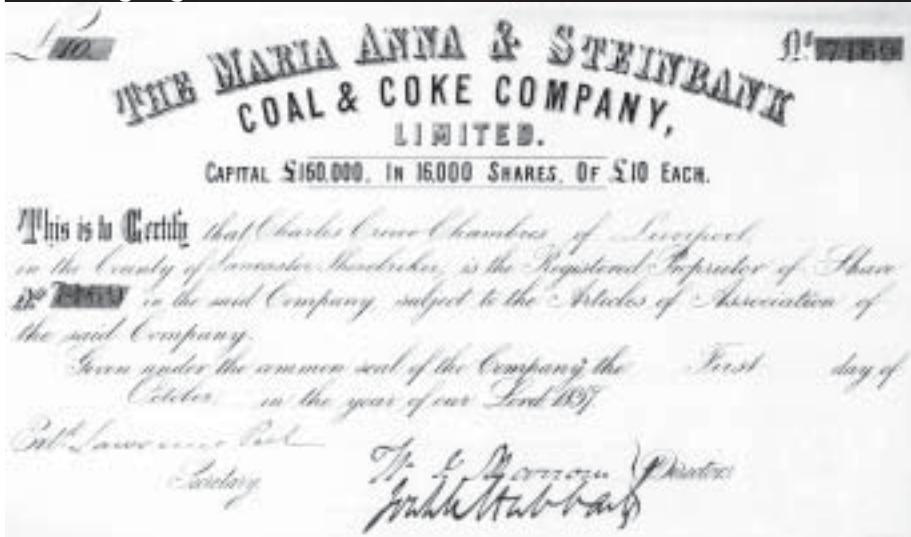 £10. No. 7169
THE MARIA ANNA & STEINBANK
COAL & COKE COMPANY,
LIMITED.
CAPITAL £160,000, IN 16,000 SHARES, OF £10 EACH.
This is to Certify that Charles Crowe Chambres of Liverpool
in the County of Lancaster Sharebroker, is the Registered Proprietor of Share
No. in the said Company, subject to the Articles of Association of
the said Company.
Given under the common seal of the Company the First day of
October in the year of our Lord 1857
Lawrence Peel
Secretary W Morrow Directors
Hubback